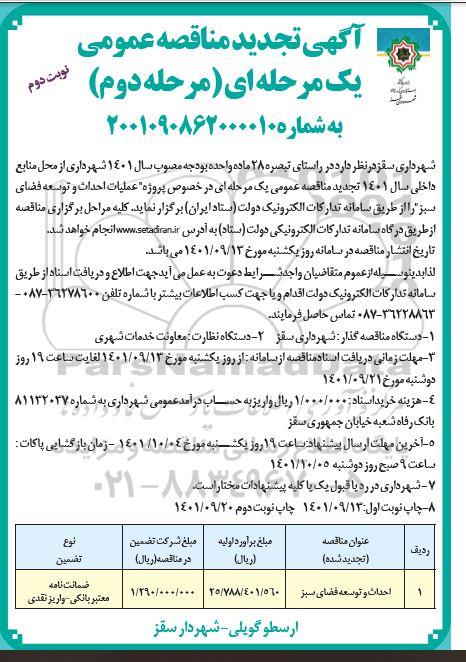 آگهی تجدید مناقصه عمومی
یک مرحله ای (مرحله دوم)
نوبت دوم
به شماره ۲۰۰۱۰۹۰۸۶۲۰۰۰۰۱۰
شهرداری سقز در نظر دارد در راستای تبصره ۲۸ ماده واحده بودجه مصوب سال ۱۴۰۱ شهرداری از محل منابع
داخلی سال ۱۴۰۱ تجدید مناقصه عمومی یک مرحله ای در خصوص پروژه "عملیات احداث و توسعه فضای
سبز" را از طریق سامانه تدارکات الکترونیک دولت (ستاد ایران) برگزار نماید. کلیه مراحل برگزاری مناقصه
از طریق درگاه سامانه تدارکات الکترونیکی دولت (ستاد) به آدرس www.setadiran.ir انجام خواهد شد.
تاریخ انتشار مناقصه در سامانه روز یکشنبه مورخ ۱۴۰۱/۰۹/۱۳ می باشد.
لذا بدینوسیله از عموم متقاضیان واجد شرایط دعوت به عمل می آید جهت اطلاع و دریافت اسناد از طریق
سامانه تدارکات الکترونیک دولت اقدام و یا جهت کسب اطلاعات بیشتر با شماره تلفن ۳۶۲۷۸۶۰۰-۰۸۷ -
۳۶۲۲۸۸۶۳-۰۸۷ تماس حاصل فرمایند.
۱-دستگاه مناقصه گذار: شهرداری سقز ۲-دستگاه نظارت: معاونت خدمات شهری
۳-مهلت زمانی دریافت اسناد مناقصه از سامانه: از روز یکشنبه مورخ ۱۴۰۱/۰۹/۱۳ لغایت ساعت ۱۹ روز
دوشنبه مورخ ۱۴۰۱/۰۹/۲۱
۴-هزینه خرید اسناد: ۱/۰۰۰/۰۰۰ ریال واریز به حساب درآمد عمومی شهرداری به شماره ۸۱۱۳۲۰۳۷
بانک رفاه شعبه خیابان جمهوری سقز
۵-آخرین مهلت ارسال پیشنهاد: ساعت ۱۹ روز یکشنبه مورخ ۱۴۰۱/۱۰/۰۴ - زمان بازگشایی پاکات:
ساعت ۹ صبح روز دوشنبه ۱۴۰۱/۱۰/۰۵
۷-شهرداری در رد یا قبول یک یا کلیه پیشنهادات مختار است.
۸-چاپ نوبت اول: ۱۴۰۱/۰۹/۱۳ چاپ نوبت دوم ۱۴۰۱/۰۹/۲۰
ردیف عنوان مناقصه (تجدید شده) مبلغ برآورد اولیه (ریال) مبلغ شرکت تضمین در مناقصه (ریال) نوع تضمین
۱ احداث و توسعه فضای سبز ۲۵/۷۸۸/۴۰۱/۵۶۰ ۱/۲۹۰/۰۰۰/۰۰۰ ضمانت نامه معتبر بانکی-واریز نقدی
ارسطو گویلی-شهردار سقز
ParsNamadData
۰۲۱-۸۸۳۴۹۶۷۰